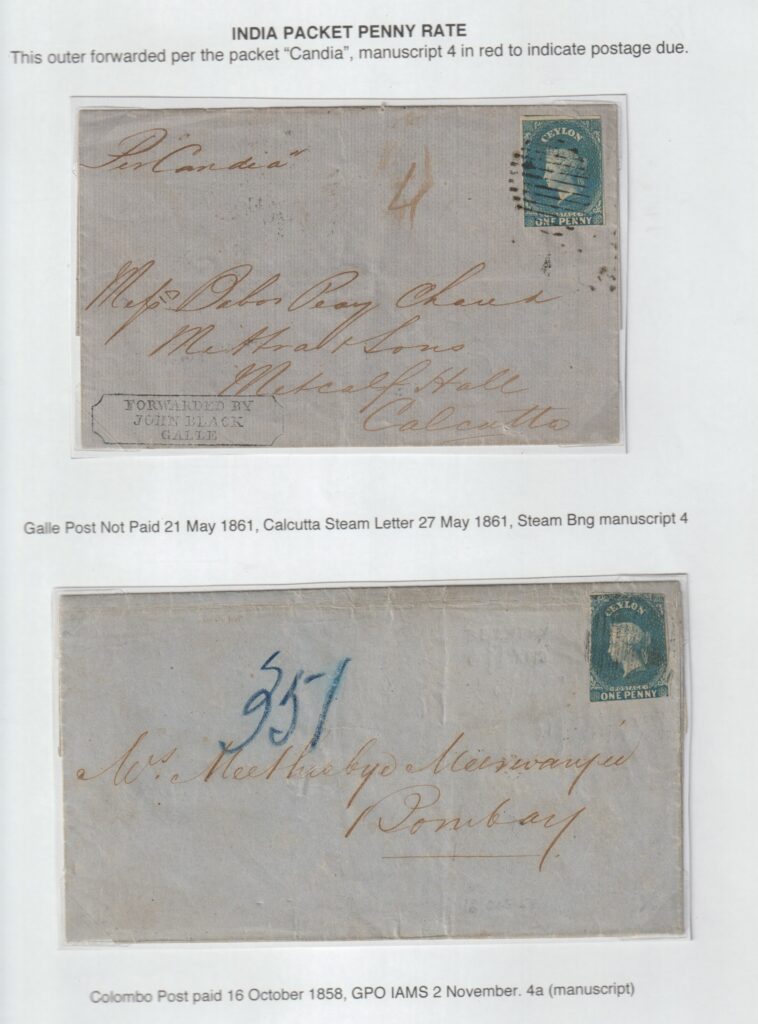 INDIA PACKET PENNY RATE
This outer forwarded per the packet “Candia”, manuscript 4 in red to indicate postage due.
Per "Candia"
4
CEYLON
POSTAGE
ONE PENNY
Baboo Peary Chand
Mittra & Sons
Metcalf Hall
Calcutta
FORWARDED BY
JOHN BLACK
GALLE
Galle Post Not Paid 21 May 1861, Calcutta Steam Letter 27 May 1861, Steam Bng manuscript 4
CEYLON
POSTAGE
ONE PENNY
351
Bombay
Colombo Post paid 16 October 1858, GPO IAMS 2 November. 4a (manuscript)